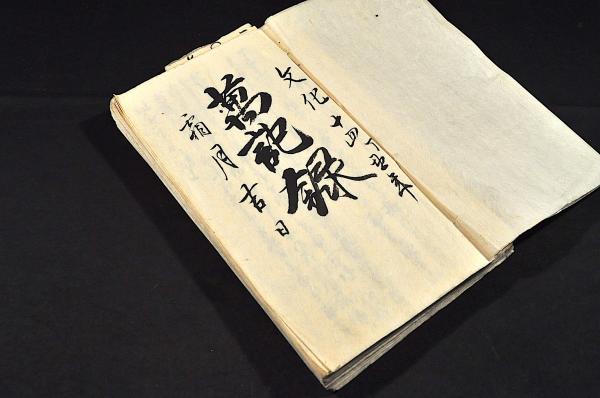 文化十四丁丑年
萬記録
霜月吉日